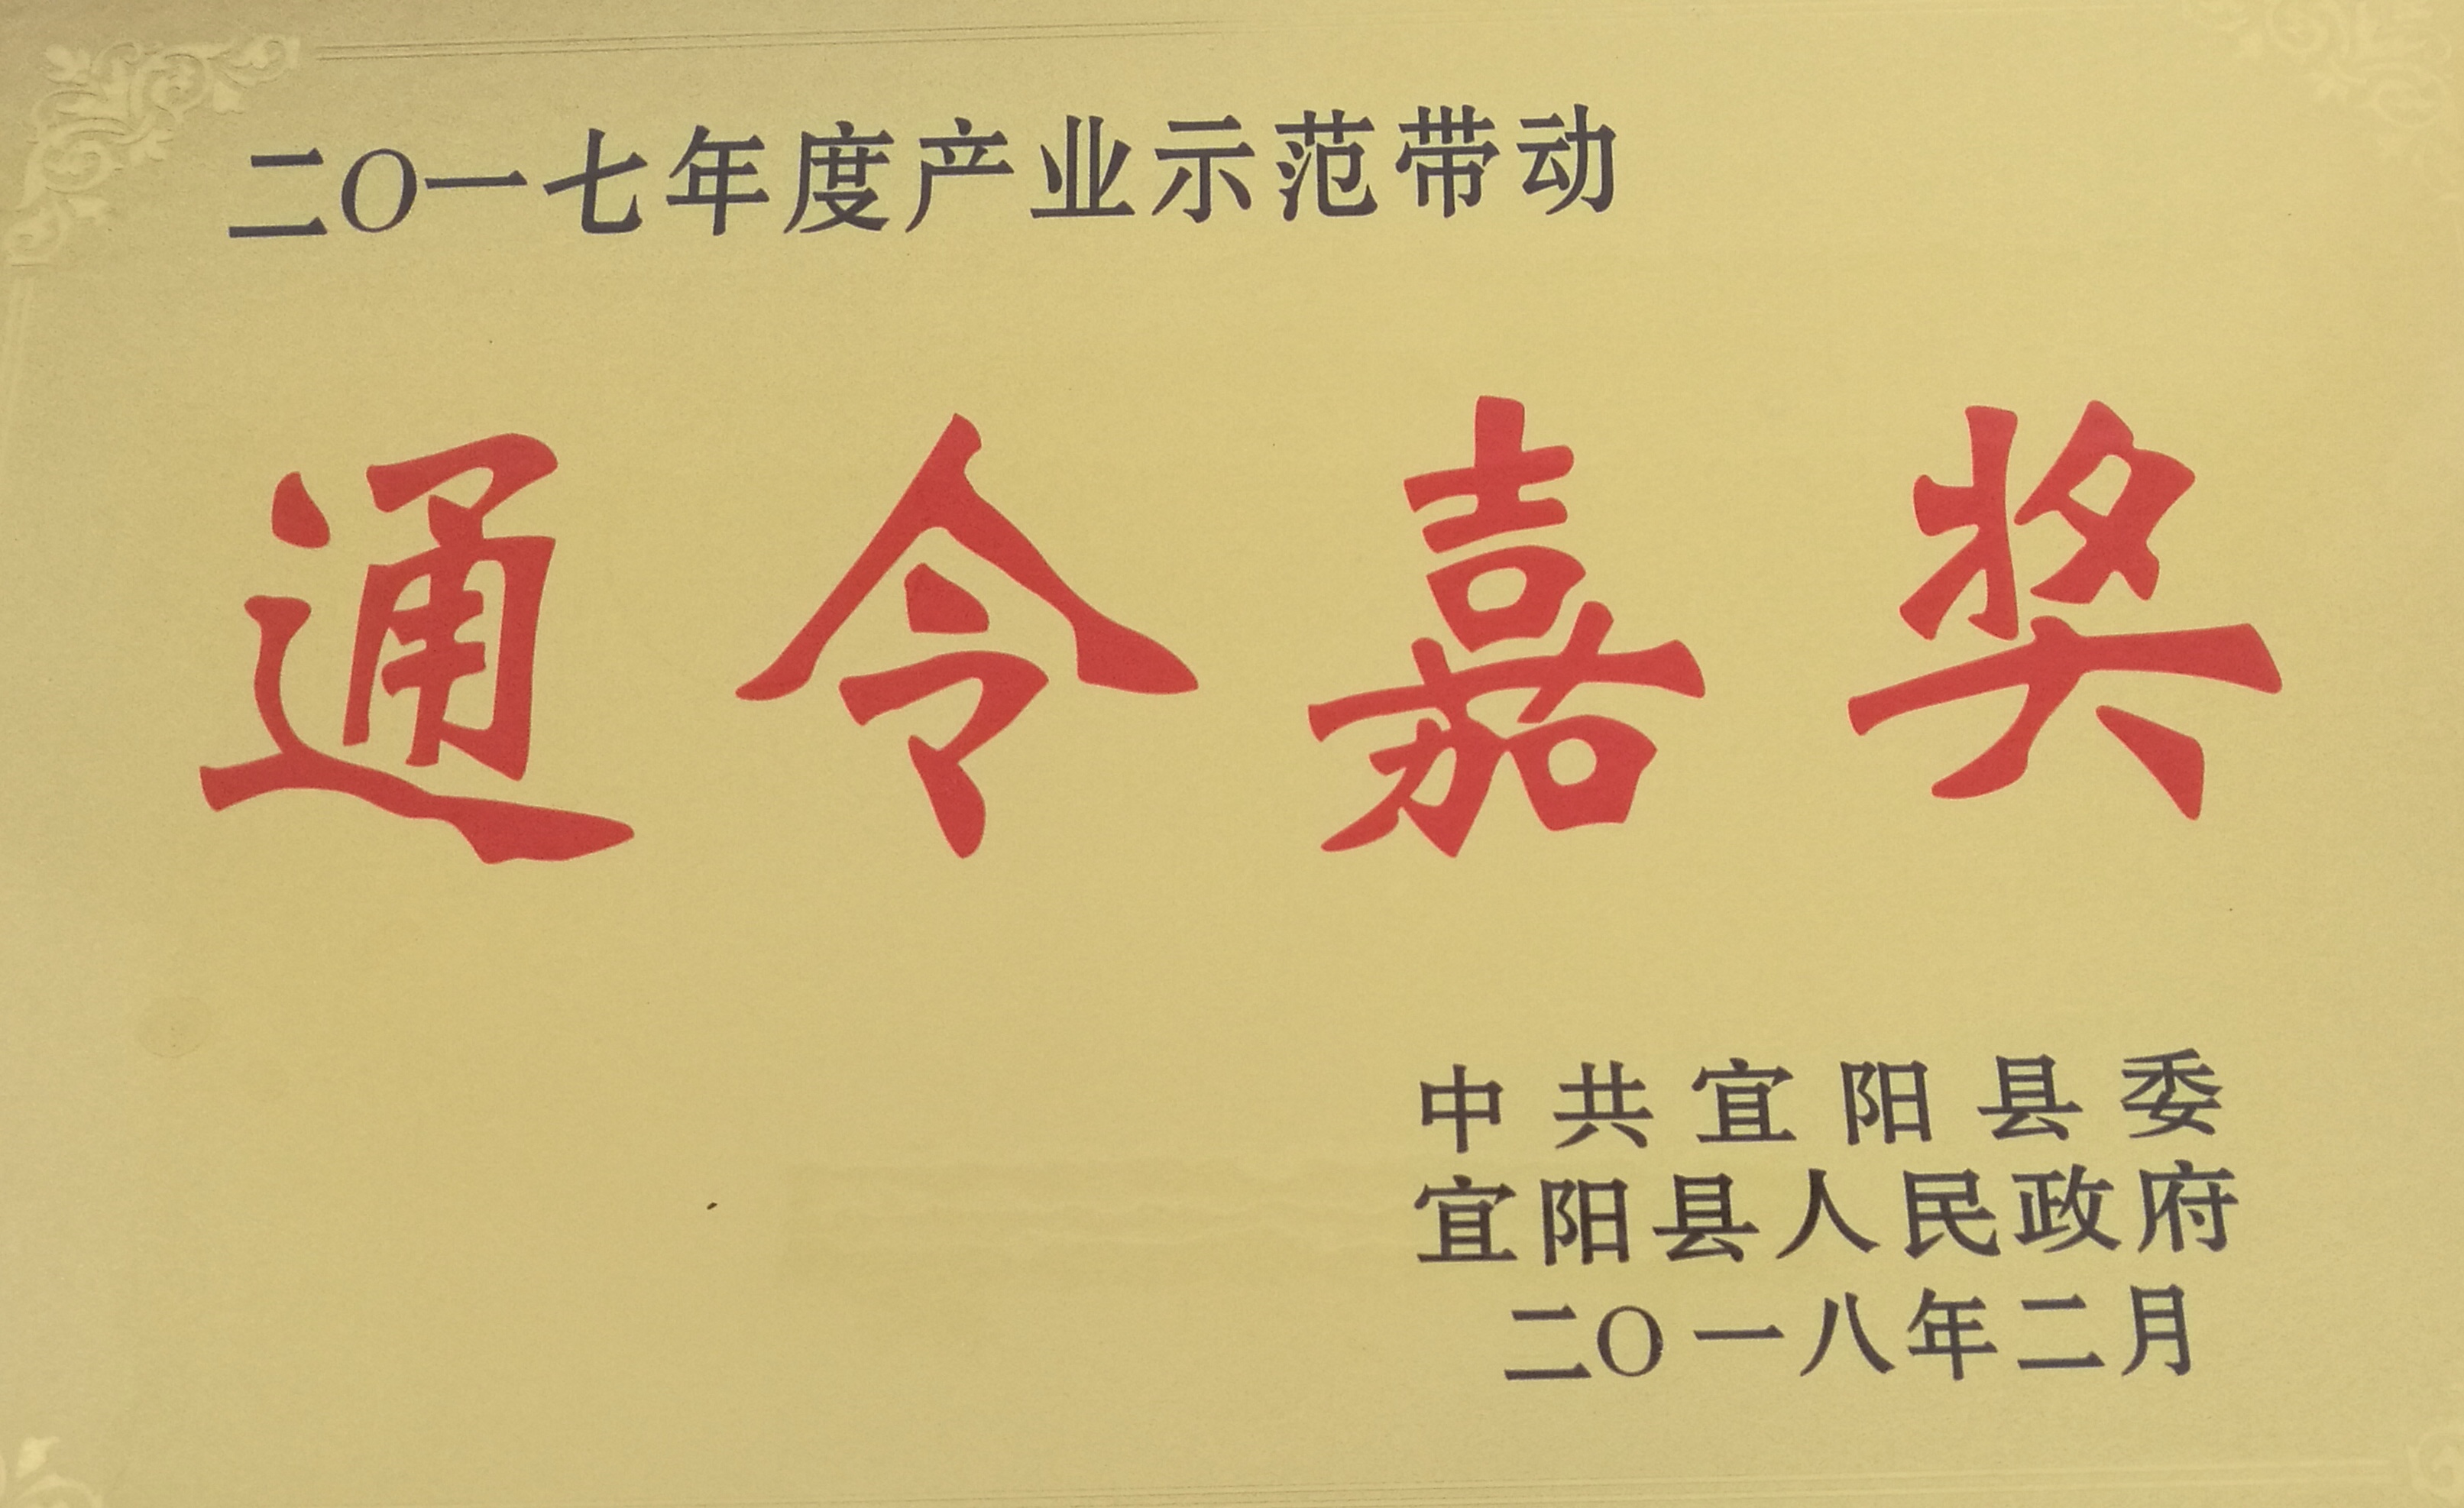 二〇一七年度产业示范带动
通令嘉奖
中共宜阳县委
宜阳县人民政府
二〇一八年二月